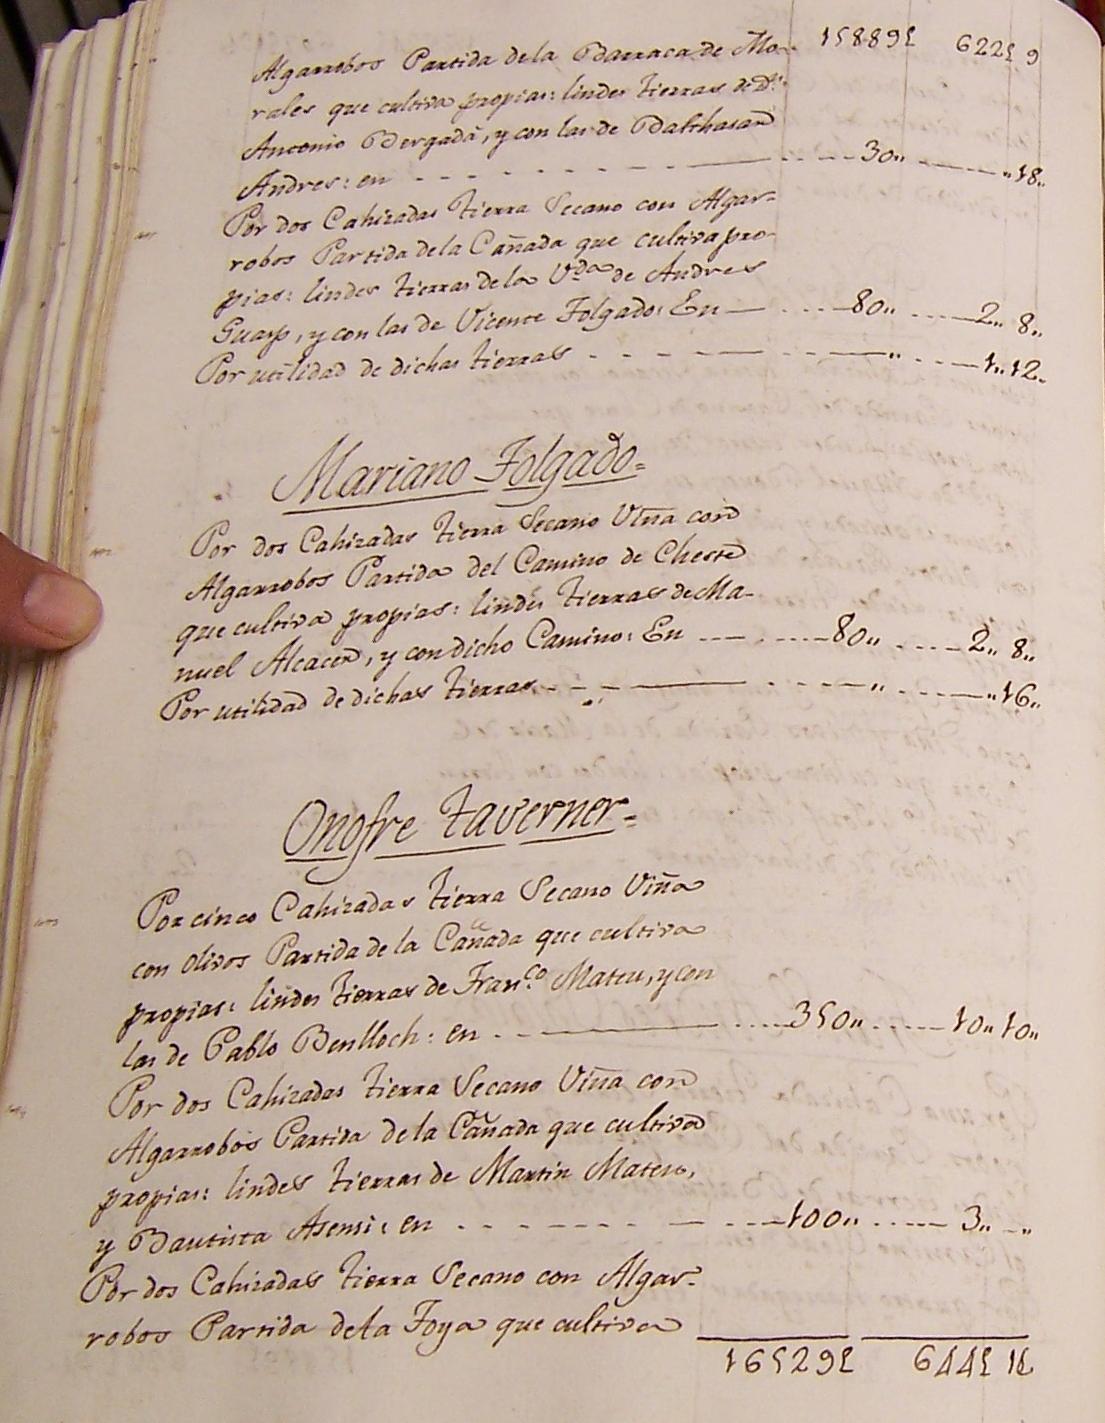 15889£ 622£ 9
Algarrobos Partida de la Barraca de Mo-
rales que cultiva propias: lindes tierras de Dⁿ.
Antonio Bergadá, y con las de Balthasar
Andres: en 30,, ,,18,,
Por dos Cahizadas tierra Secano con Algar-
robos Partida de la Cañada que cultiva pro-
pias: lindes tierras de la Vda de Andres
Guasp, y con las de Vicente Folgado: En 80,, 2,, 8,,
Por utilidad de dichas tierras ,, 1,,12,,
Mariano Folgado=
Por dos Cahizadas tierra Secano Viña con
Algarrobos Partida del Camino de Cheste
que cultiva propias: lindes tierras de Ma-
nuel Alcacer, y con dicho Camino: En 80,, 2,, 8,,
Por utilidad de dichas tierras ,, ,,16,,
Onofre Taverner=
Por cinco Cahizadas tierra Secano Viña
con olivos Partida de la Cañada que cultiva
propias: lindes tierras de Fran.co Mateu, y con
las de Pablo Benlloch: en 350,, 10,,10,,
Por dos Cahizadas tierra Secano Viña con
Algarrobos Partida de la Cañada que cultiva
propias: lindes tierras de Martin Mateu,
y Bautista Asensi: en 100,, 3,, ,,
Por dos Cahizadas tierra Secano con Algar-
robos Partida de la Foya que cultiva
16529£ 644£ 1£